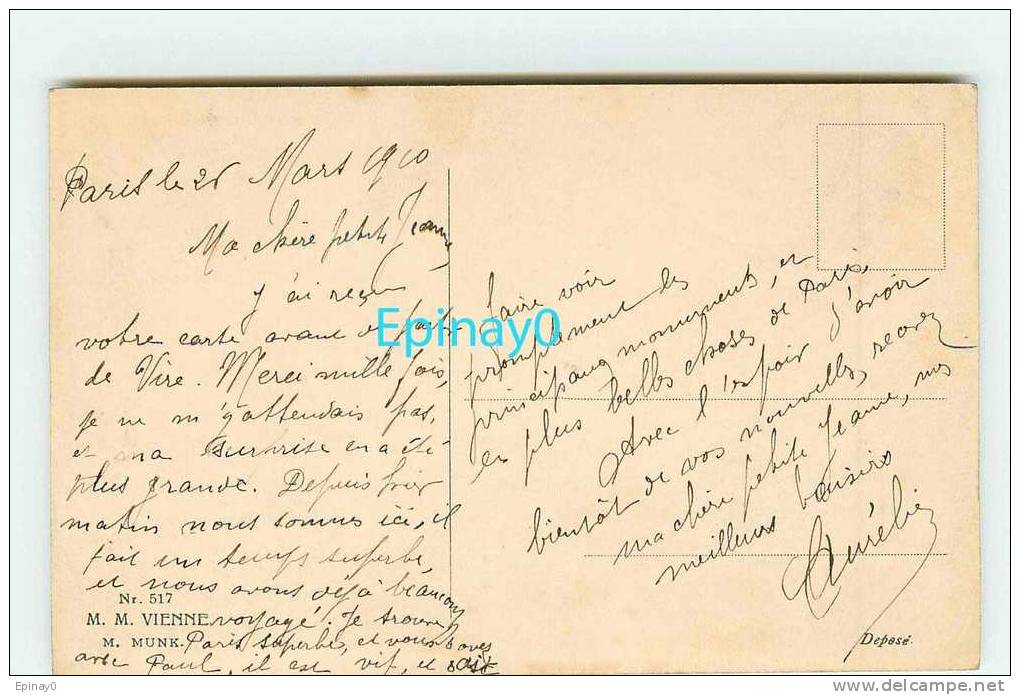 Paris le 26 Mars 1910
Ma chère petite Jeanne,
j'ai reçu
votre carte avant de partir
de Vire. Merci mille fois,
je ne m'y attendais pas,
et ma surprise en a été
plus grande. Depuis hier
matin nous sommes ici, il
fait un temps superbe,
et nous avons déjà beaucoup
voyagé. Je trouve
Paris superbe, et vous savez
avec Paul, il est vif, et sait
faire voir
promptement les
principaux monuments, et
les plus belles choses de Paris.
Avec l'espoir d'avoir
bientôt de vos nouvelles, recevez
ma chère petite Jeanne, mes
meilleurs baisers
Aurélie
Nr. 517
M. M. VIENNE
M. MUNK.
Déposé.
Epinay0
Epinay0
http://www.delcampe.net